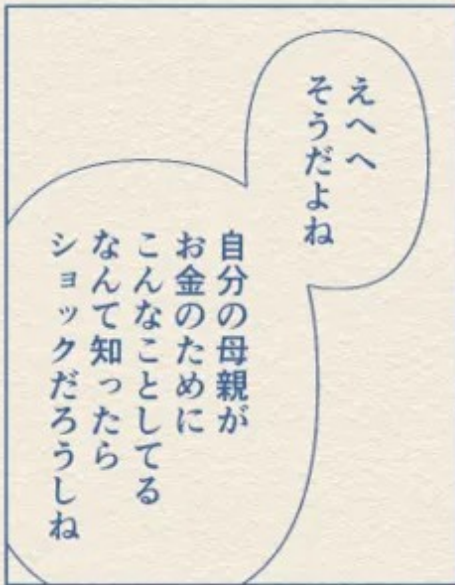 えへへ
そうだよね
自分の母親が
お金のために
こんなことしてる
なんて知ったら
ショックだろうしね